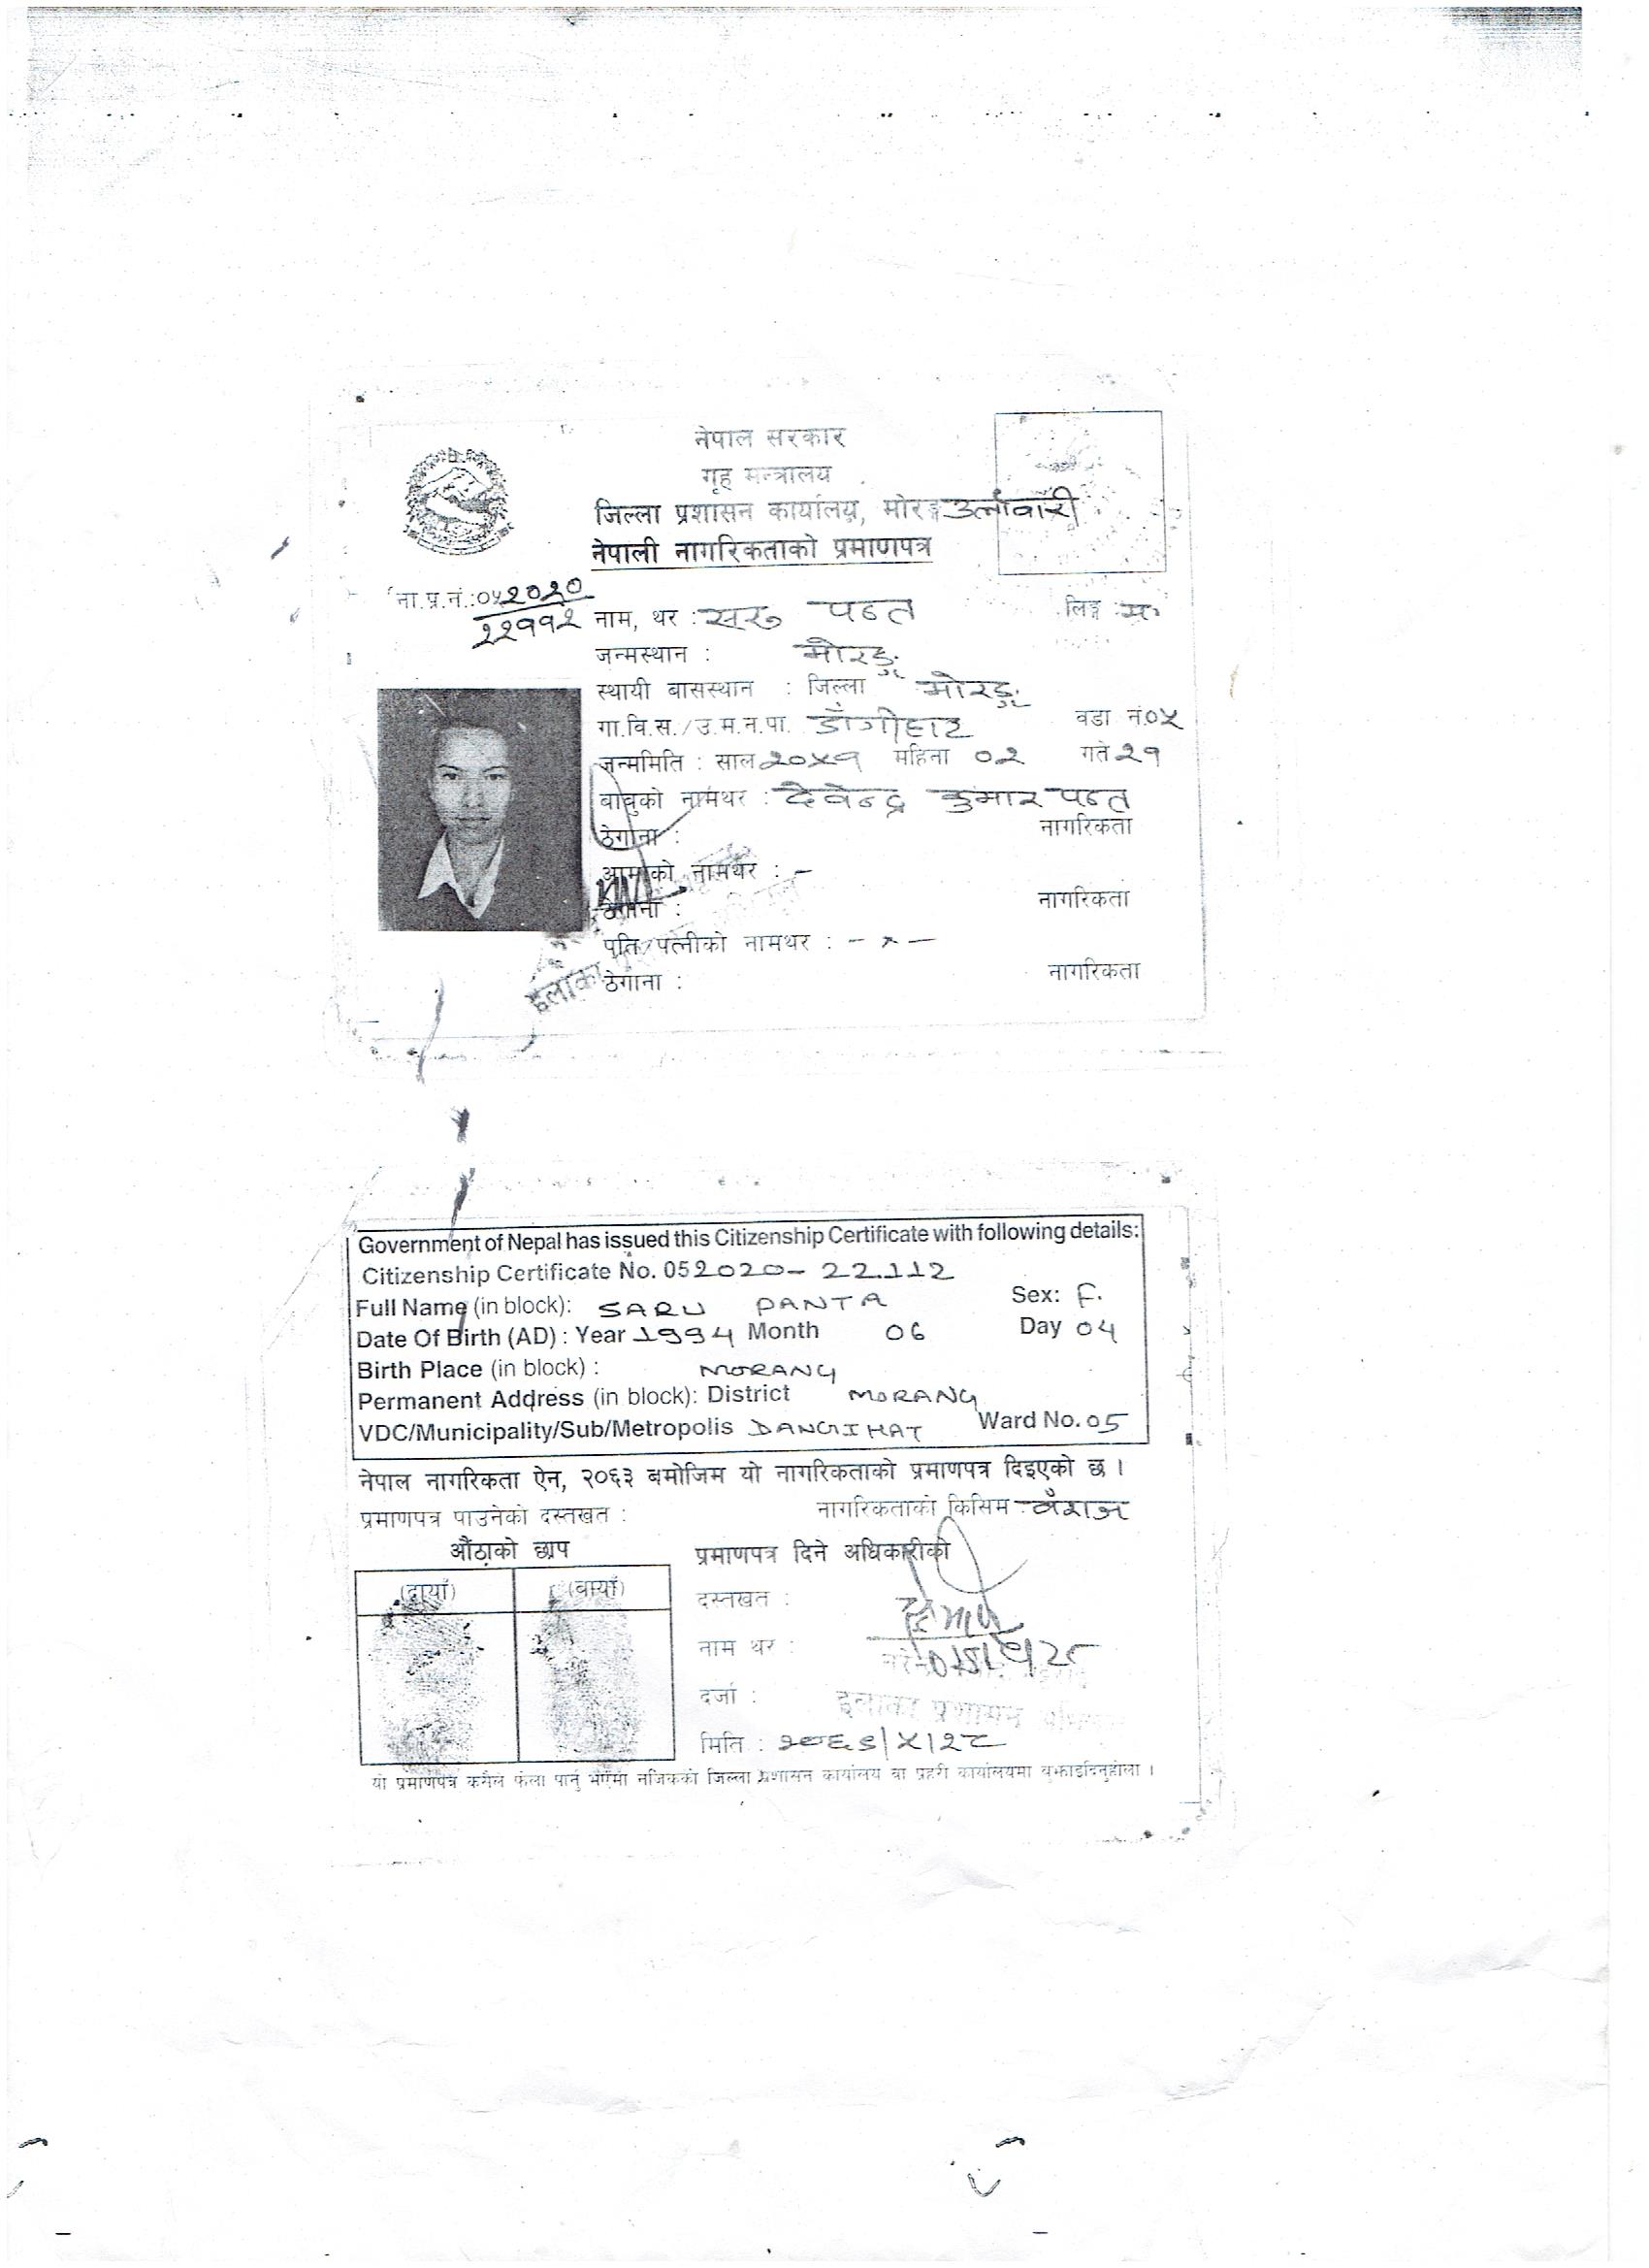 नेपाल सरकार
गृह मन्त्रालय
जिल्ला प्रशासन कार्यालय, मोरङ्ग उर्लाबारी
नेपाली नागरिकताको प्रमाणपत्र
ना.प्र.नं.:०५२०२०
२२११२
नाम, थर : सरु पन्त लिङ्ग म.
जन्मस्थान : मोरङ्ग
स्थायी बासस्थान : जिल्ला मोरङ्ग
गा.वि.स./उ.म.न.पा. डाँगीहाट वडा नं.०५
जन्ममिति : साल २०५१ महिना ०२ गते २१
बाबुको नामथर : देवेन्द्र कुमार पन्त
ठेगाना : नागरिकता
आमाको नामथर : -
ठेगाना : नागरिकता
पति/पत्नीको नामथर : - x -
ठेगाना : नागरिकता
इलाका
Government of Nepal has issued this Citizenship Certificate with following details:
Citizenship Certificate No. 052020- 22112
Full Name (in block): SARU PANTA Sex: F.
Date Of Birth (AD) : Year 1994 Month 06 Day 04
Birth Place (in block) : MORANG
Permanent Address (in block): District MORANG
VDC/Municipality/Sub/Metropolis DANGIHAT Ward No. 05
नेपाल नागरिकता ऐन, २०६३ बमोजिम यो नागरिकताको प्रमाणपत्र दिइएको छ ।
प्रमाणपत्र पाउनेको दस्तखत : नागरिकताको किसिम : वंशज
औंठाको छाप प्रमाणपत्र दिने अधिकारीको
(दायाँ) (बायाँ)
दस्तखत :
नाम थर :
दर्जा : इलाका प्रशासन
मिति :
यो प्रमाणपत्र कसैले फेला पार्नु भएमा नजिकको जिल्ला प्रशासन कार्यालय वा प्रहरी कार्यालयमा बुझाइदिनुहोला ।